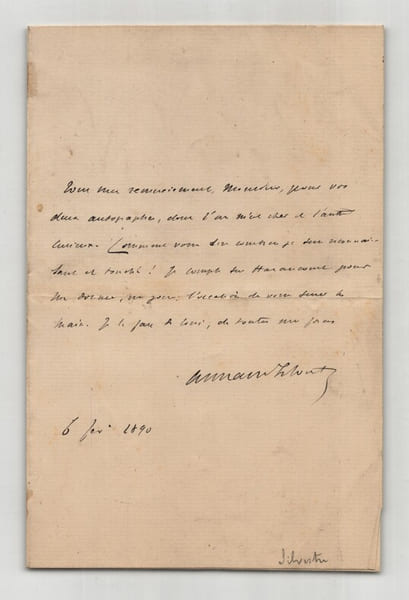 Tous mes remerciements, Monsieur, pour vos
deux autographes, dont l'un m'est cher et l'autre
curieux. Comme vous bien je suis reconnais-
sant et touché ! Je compte sur Haraucourt pour
me donner, un jour, l'occasion de vous serrer la
main. Je le fais de loin, de toutes mes forces
Armand Silvestre
6 fév. 1890
Silvestre